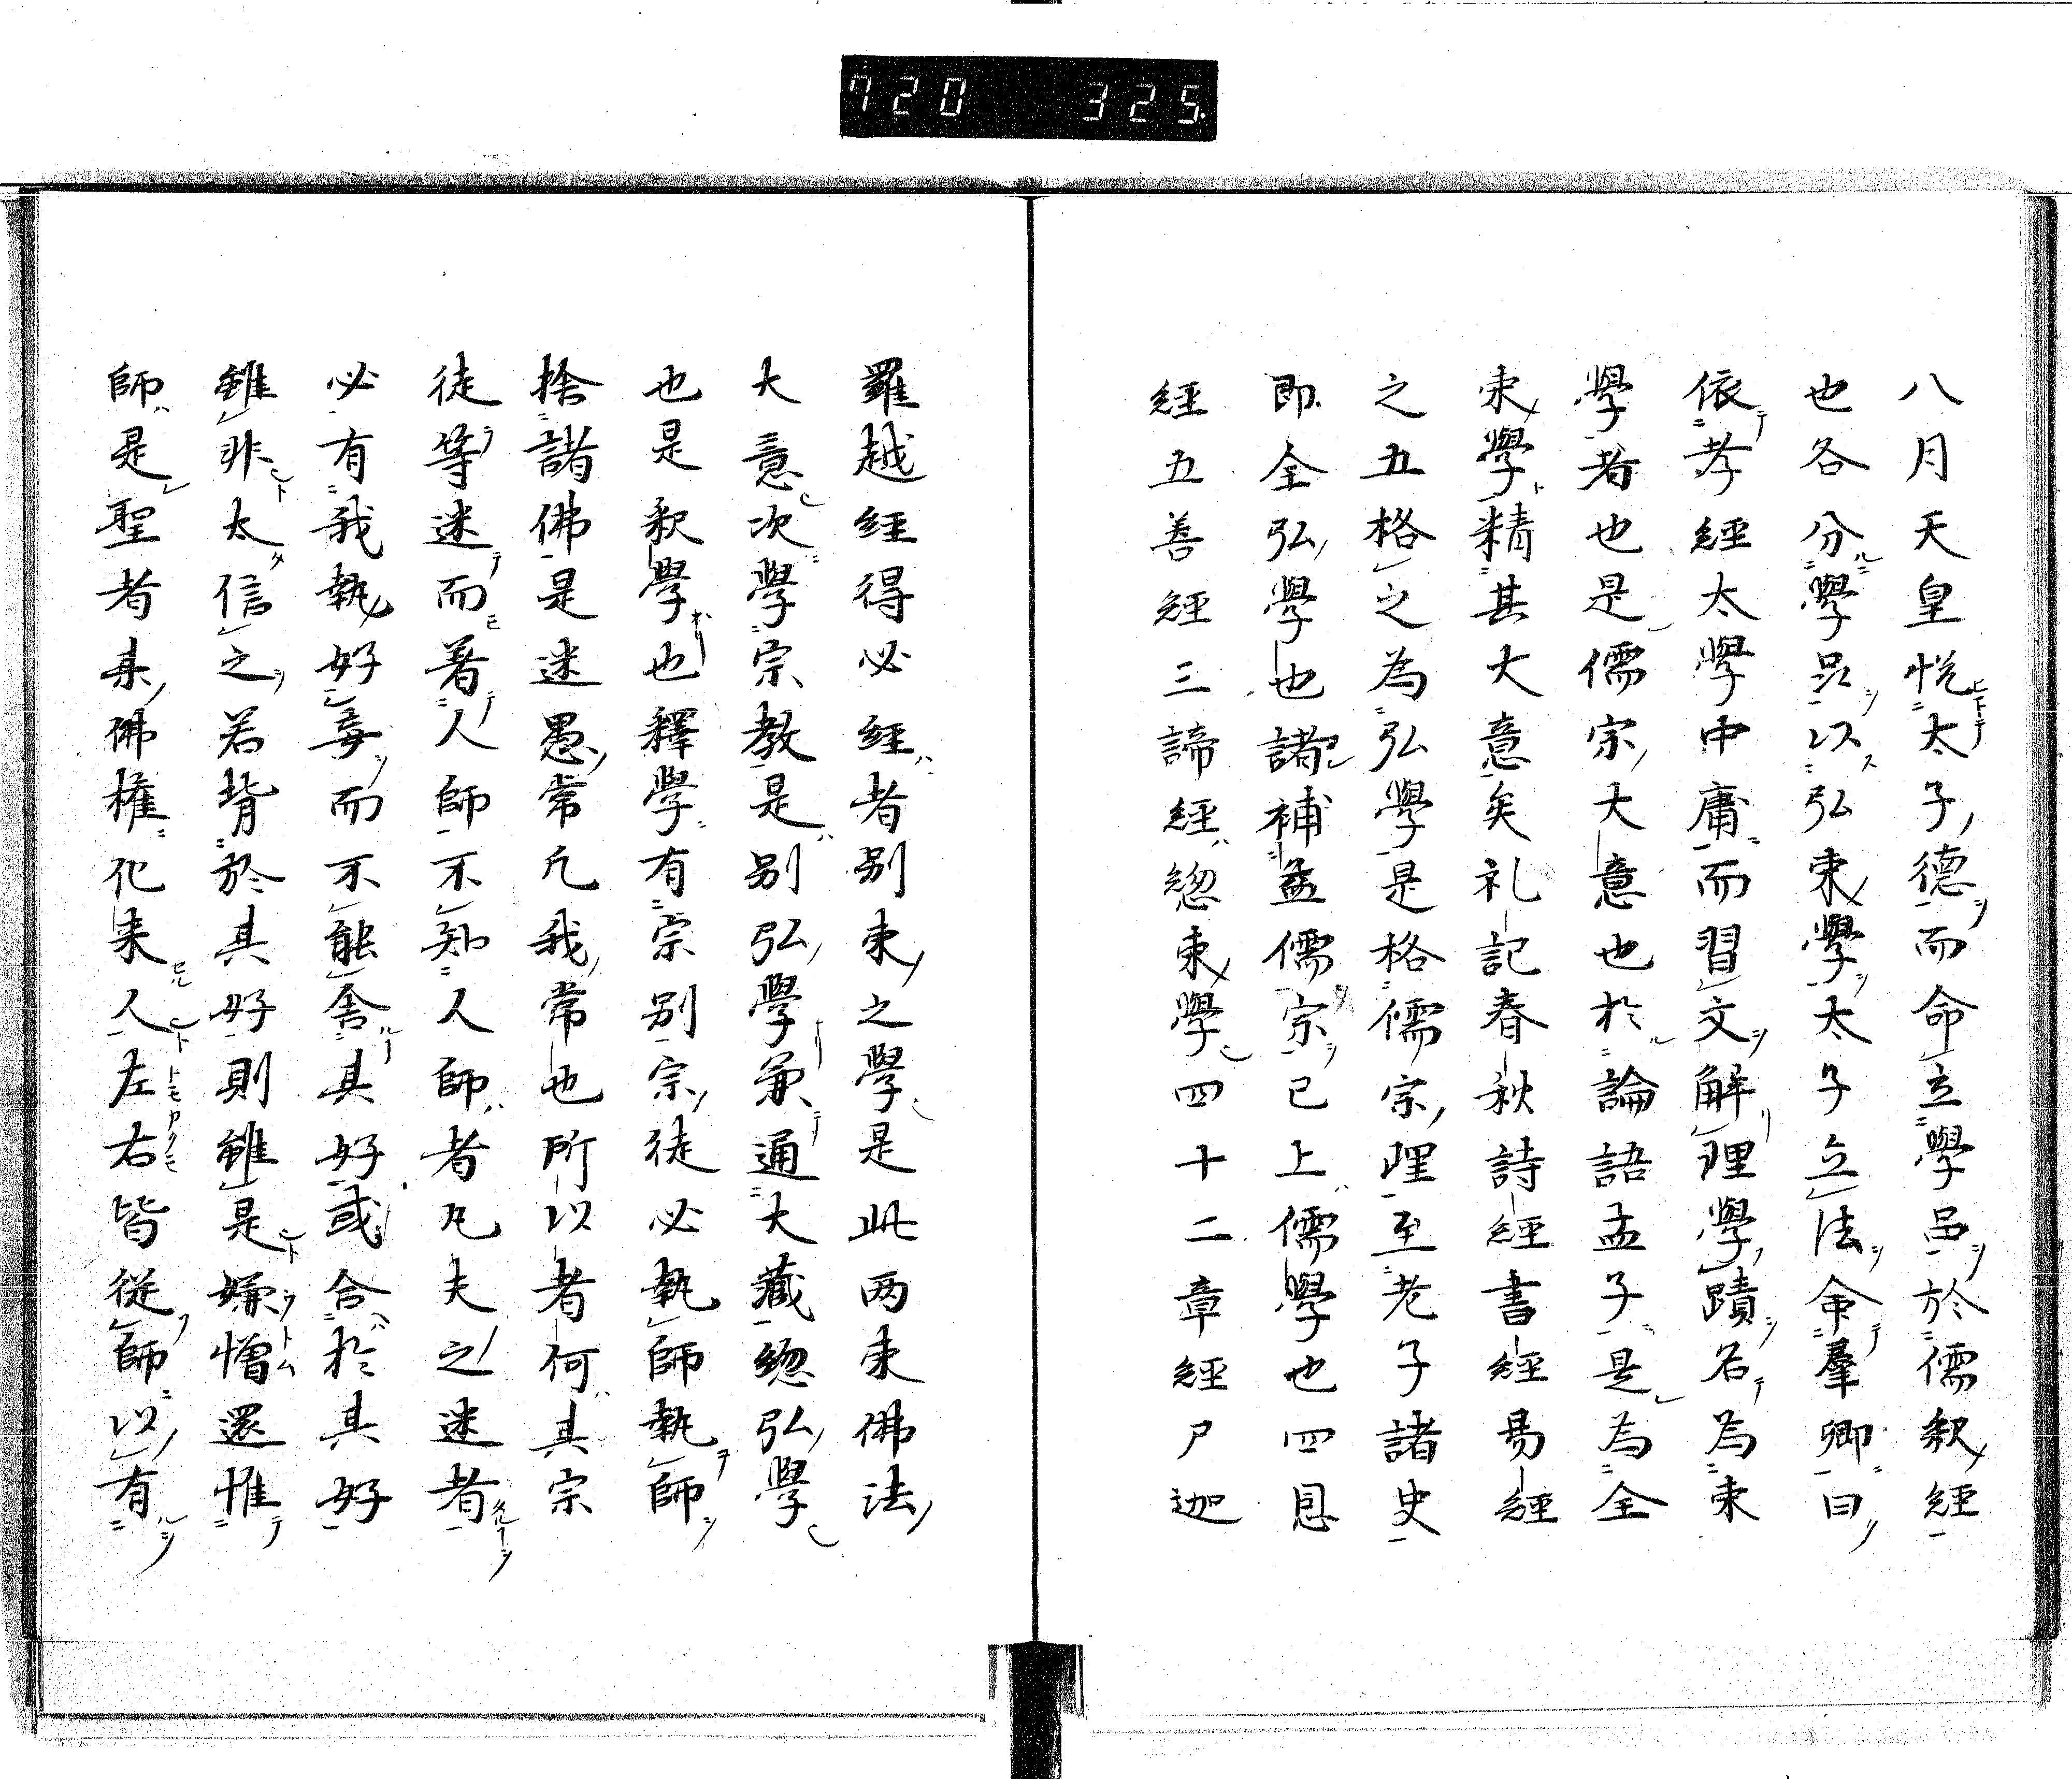 720 325
八月天皇悦太子德而命立學邑於儒釈經
也各分學品以弘束學太子立法命羣卿曰
依孝經太學中庸而習文解理學蹟名為束
學者也是儒宗大意也於論語孟子是為全
束學精其大意矣礼記春秋詩經書經易經
之五格之為弘學是格儒宗理至老子諸史
即全弘學也諸補孟儒宗已上儒學也四恩
經五善經三諦經總束學四十二章經尸迦
羅越經得必經者別束之學是此两束佛法
大意次學宗教是別弘學兼通大藏總弘學
也是釈學也釋學有宗別宗徒必執師執師
捨諸佛是迷愚常凡我常也所以者何其宗
徒等迷而著人師不知人師者凡夫之迷者
必有我執好妄而不能舍其好或合於其好
雖非太信之若背於其好則雖是嫌憎還惟
師是聖者未佛權化来人左右皆從師以有